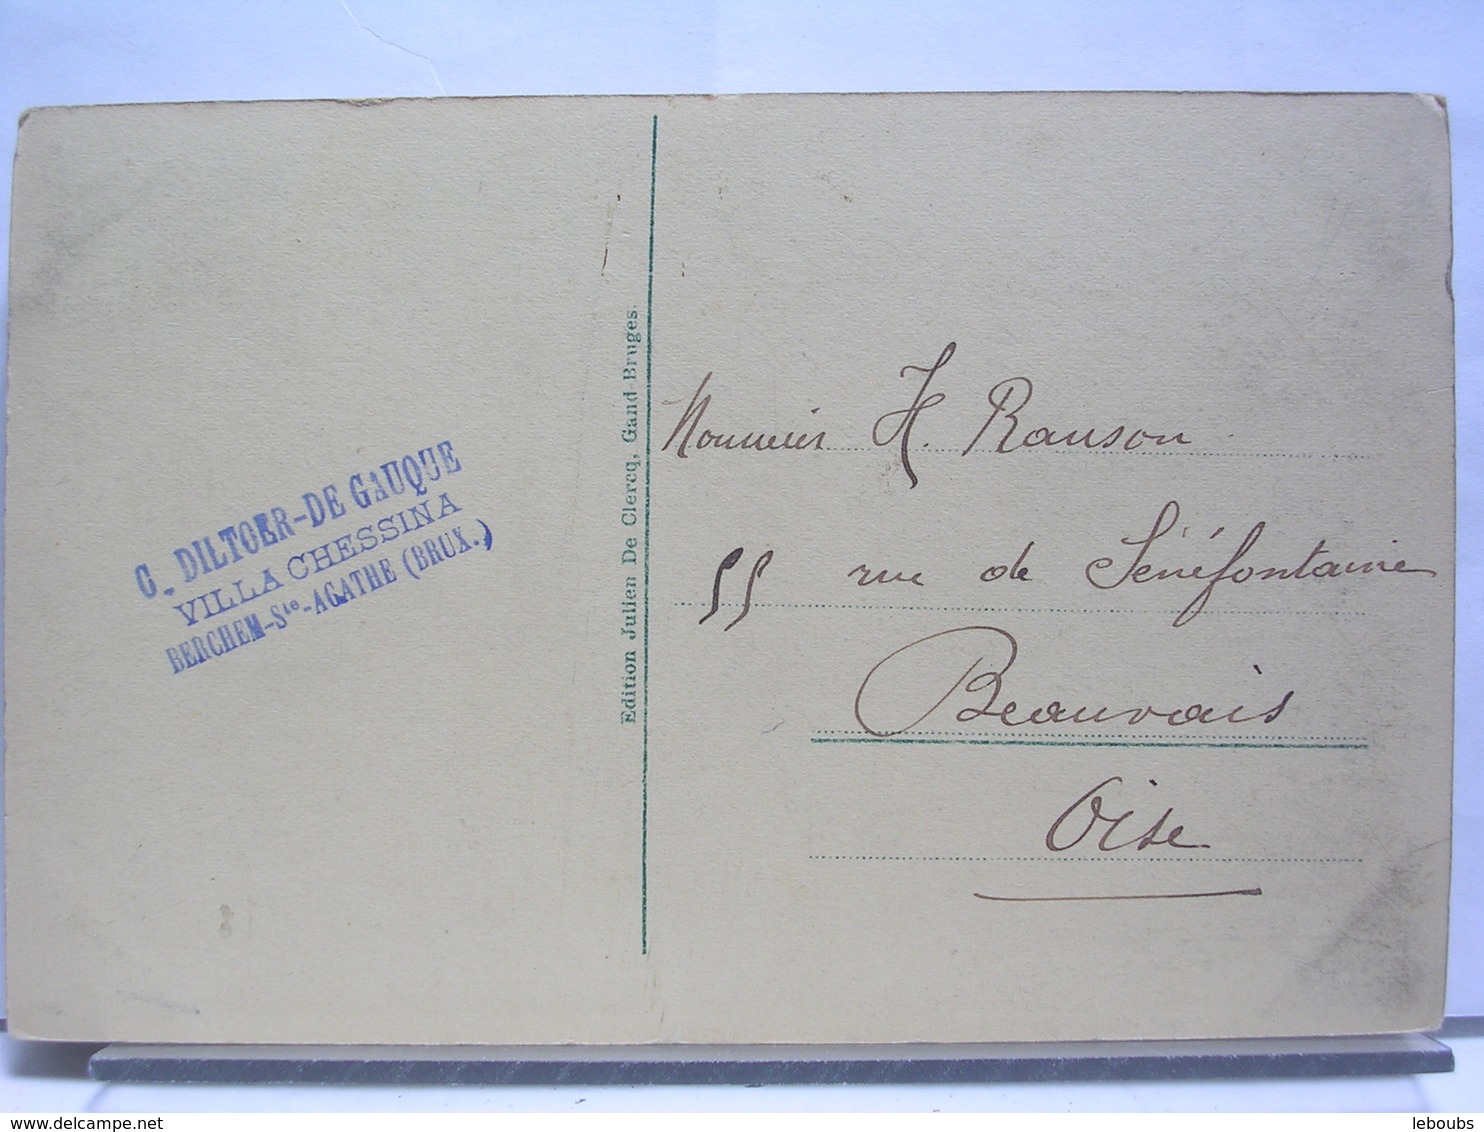 C. DILTOER-DE GAUQUE
VILLA CHESSINA
BERCHEM-Ste-AGATHE (BRUX.)
Edition Julien De Clercq, Gand-Bruges.
Monsieur H. Ranson
55 rue de Sénéfontaine
Beauvais
Oise
delcampe.net
leboubs